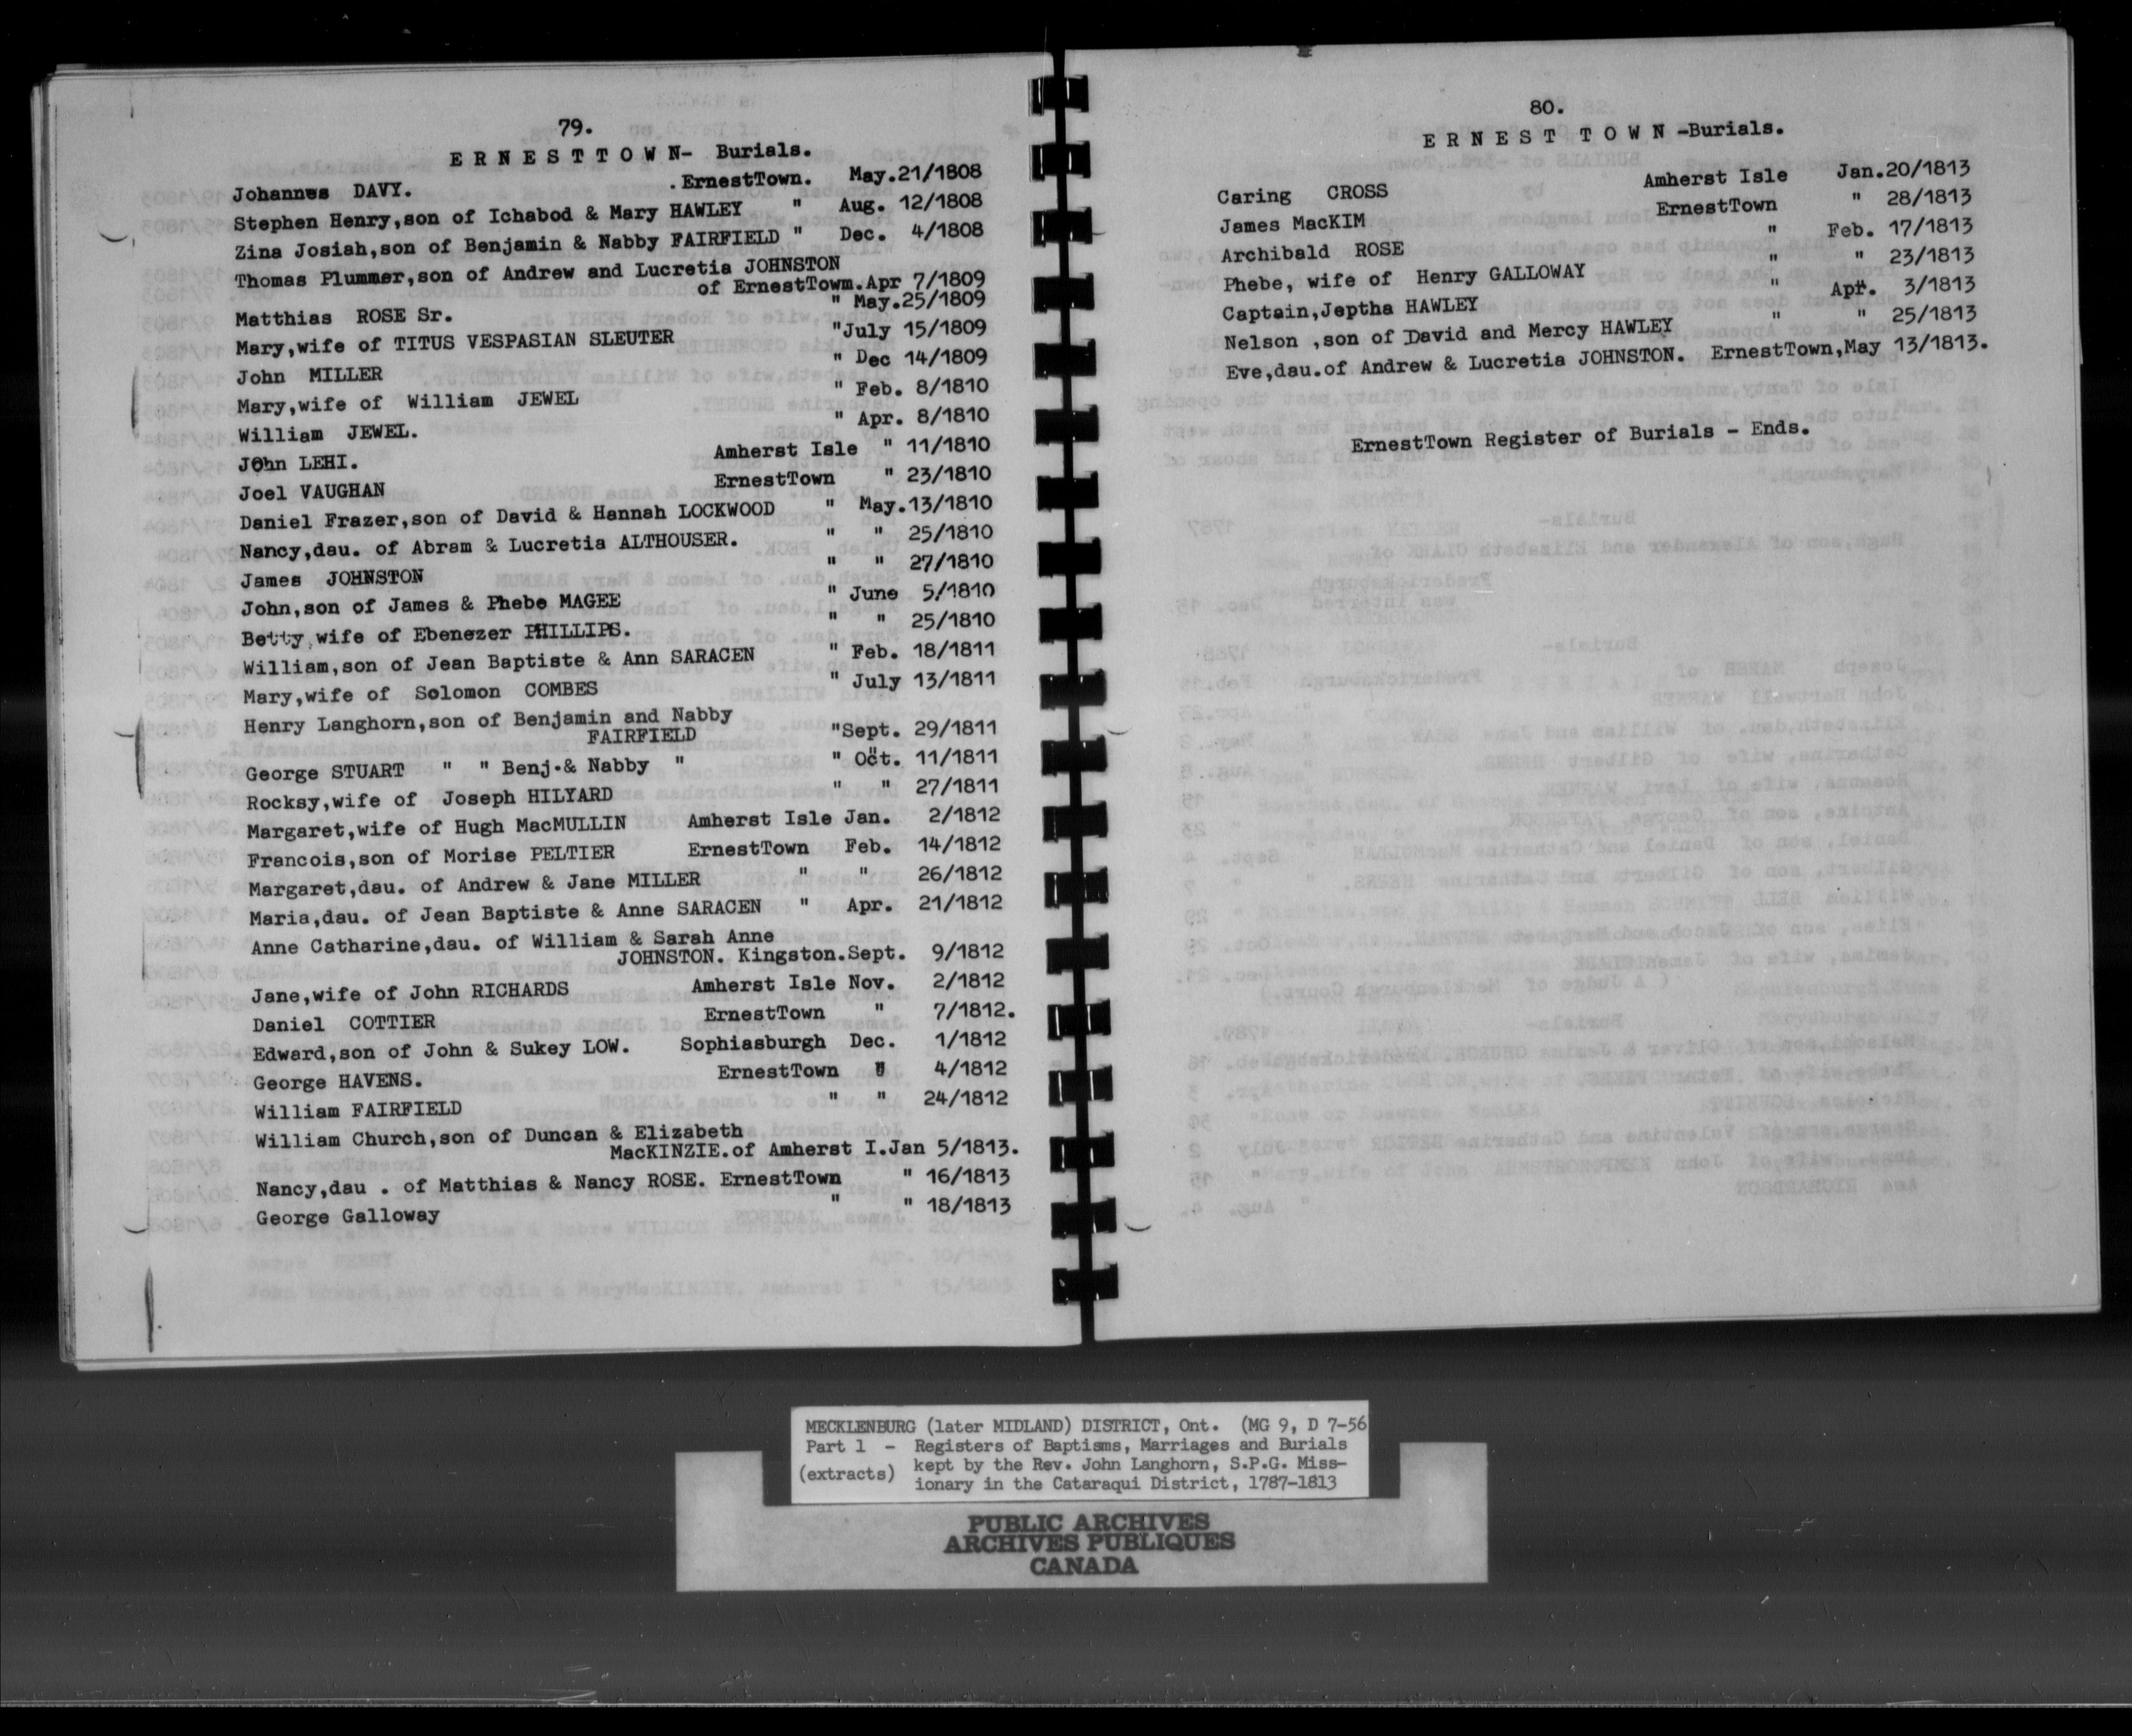 79.
E R N E S T T O W N- Burials.
Johannes DAVY. .ErnestTown. May.21/1808
Stephen Henry,son of Ichabod & Mary HAWLEY " Aug. 12/1808
Zina Josiah,son of Benjamin & Nabby FAIRFIELD " Dec. 4/1808
Thomas Plummer,son of Andrew and Lucretia JOHNSTON
of ErnestTowm.Apr 7/1809
Matthias ROSE Sr. " May.25/1809
Mary,wife of TITUS VESPASIAN SLEUTER "July 15/1809
John MILLER " Dec 14/1809
Mary,wife of William JEWEL " Feb. 8/1810
William JEWEL. " Apr. 8/1810
John LEHI. Amherst Isle " 11/1810
Joel VAUGHAN ErnestTown " 23/1810
Daniel Frazer,son of David & Hannah LOCKWOOD " May.13/1810
Nancy,dau. of Abram & Lucretia ALTHOUSER. " " 25/1810
James JOHNSTON " " 27/1810
John,son of James & Phebe MAGEE " June 5/1810
Betty,wife of Ebenezer PHILLIPS. " " 25/1810
William,son of Jean Baptiste & Ann SARACEN " Feb. 18/1811
Mary,wife of Solomon COMBES " July 13/1811
Henry Langhorn,son of Benjamin and Nabby
FAIRFIELD "Sept. 29/1811
George STUART " " Benj.& Nabby " " Oct. 11/1811
Rocksy,wife of Joseph HILYARD " " 27/1811
Margaret,wife of Hugh MacMULLIN Amherst Isle Jan. 2/1812
Francois,son of Morise PELTIER ErnestTown Feb. 14/1812
Margaret,dau. of Andrew & Jane MILLER " " 26/1812
Maria,dau. of Jean Baptiste & Anne SARACEN " Apr. 21/1812
Anne Catharine,dau. of William & Sarah Anne
JOHNSTON. Kingston.Sept. 9/1812
Jane,wife of John RICHARDS Amherst Isle Nov. 2/1812
Daniel COTTIER ErnestTown " 7/1812.
Edward,son of John & Sukey LOW. Sophiasburgh Dec. 1/1812
George HAVENS. ErnestTown " 4/1812
William FAIRFIELD " " 24/1812
William Church,son of Duncan & Elizabeth
MacKINZIE.of Amherst I.Jan 5/1813.
Nancy,dau . of Matthias & Nancy ROSE. ErnestTown " 16/1813
George Galloway " " 18/1813
80.
E R N E S T T O W N -Burials.
Caring CROSS Amherst Isle Jan.20/1813
James MacKIM ErnestTown " 28/1813
Archibald ROSE " Feb. 17/1813
Phebe, wife of Henry GALLOWAY " " 23/1813
Captain,Jeptha HAWLEY " Apr. 3/1813
Nelson ,son of David and Mercy HAWLEY " " 25/1813
Eve,dau.of Andrew & Lucretia JOHNSTON. ErnestTown,May 13/1813.
ErnestTown Register of Burials - Ends.
MECKLENBURG (later MIDLAND) DISTRICT, Ont. (MG 9, D 7-56
Part 1 - Registers of Baptisms, Marriages and Burials
(extracts) kept by the Rev. John Langhorn, S.P.G. Miss-
ionary in the Cataraqui District, 1787-1813
PUBLIC ARCHIVES
ARCHIVES PUBLIQUES
CANADA